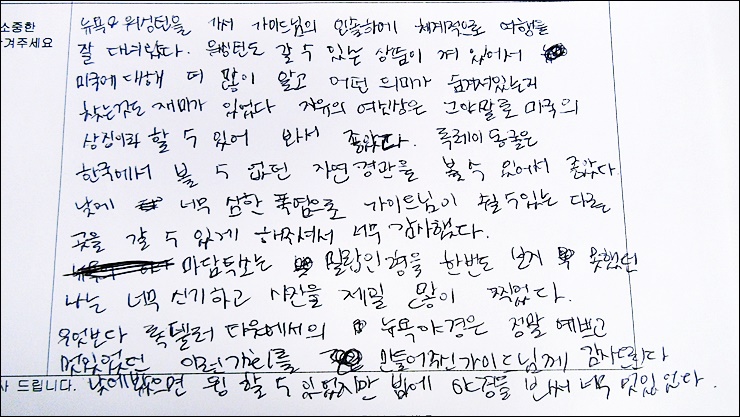 소중한
겨주세요
뉴욕과 워싱턴을 가서 가이드님의 인솔하에 체계적으로 여행을
잘 다녀왔다. 워싱턴도 갈 수 있는 상품이 껴 있어서
미국에 대해 더 많이 알고 어떤 의미가 숨겨져있는지
찾는것도 재미가 있었다 자유의 여신상은 그야말로 미국의
상징이라 할 수 있어 봐서 좋았다. 룩레이동굴은
한국에서 볼 수 없던 자연경관을 볼 수 있어서 좋았다.
낮에 너무 심한 폭염으로 가이드님이 쉴 수 있는 다른
곳을 갈 수 있게 해주셔서 너무 감사했다.
마담투소는 밀랍인형을 한번도 보지 못했던
나는 너무 신기하고 사진을 제일 많이 찍었다.
무엇보다 록펠러 타운에서의 뉴욕야경은 정말 예쁘고
멋있었던 이런 자리를 만들어주신 가이드님께 감사드린다
사 드립니다.
낮에봤으면 찜찜 할 수 있었지만 밤에 야경을 봐서 너무 멋있었다.